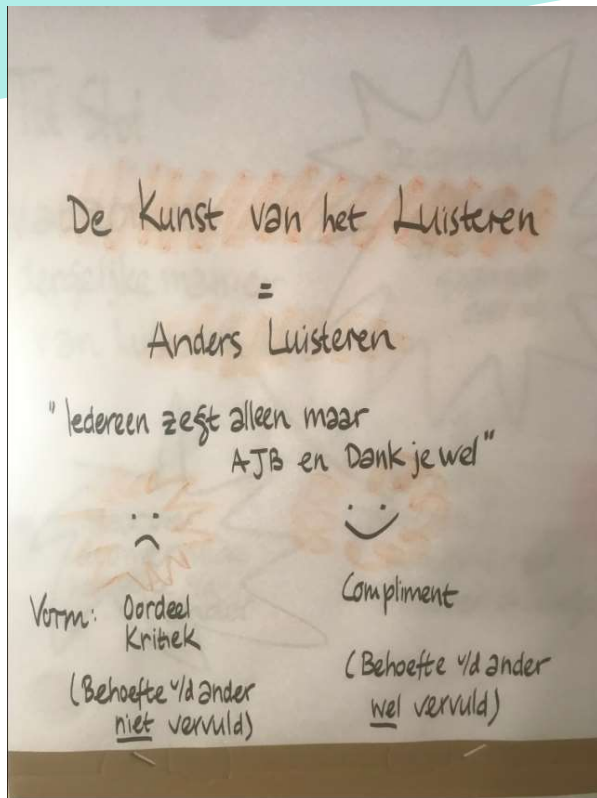 De Kunst van het Luisteren
=
Anders Luisteren
"Iedereen zegt alleen maar
AJB en Dank je wel"
Vorm: Oordeel
Kritiek
(Behoefte v/d ander
niet vervuld)
Compliment
(Behoefte v/d ander
wel vervuld)